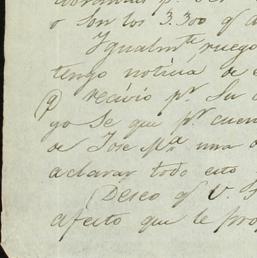 o son los 3.300 q̃ a
Igualmte ruego
tengo noticia de e
q recivio pr. Su c
yo Se que pr cuen
de Jose Ma una o
aclarar todo esto
Deseo q̃ V.
afecto que le prof